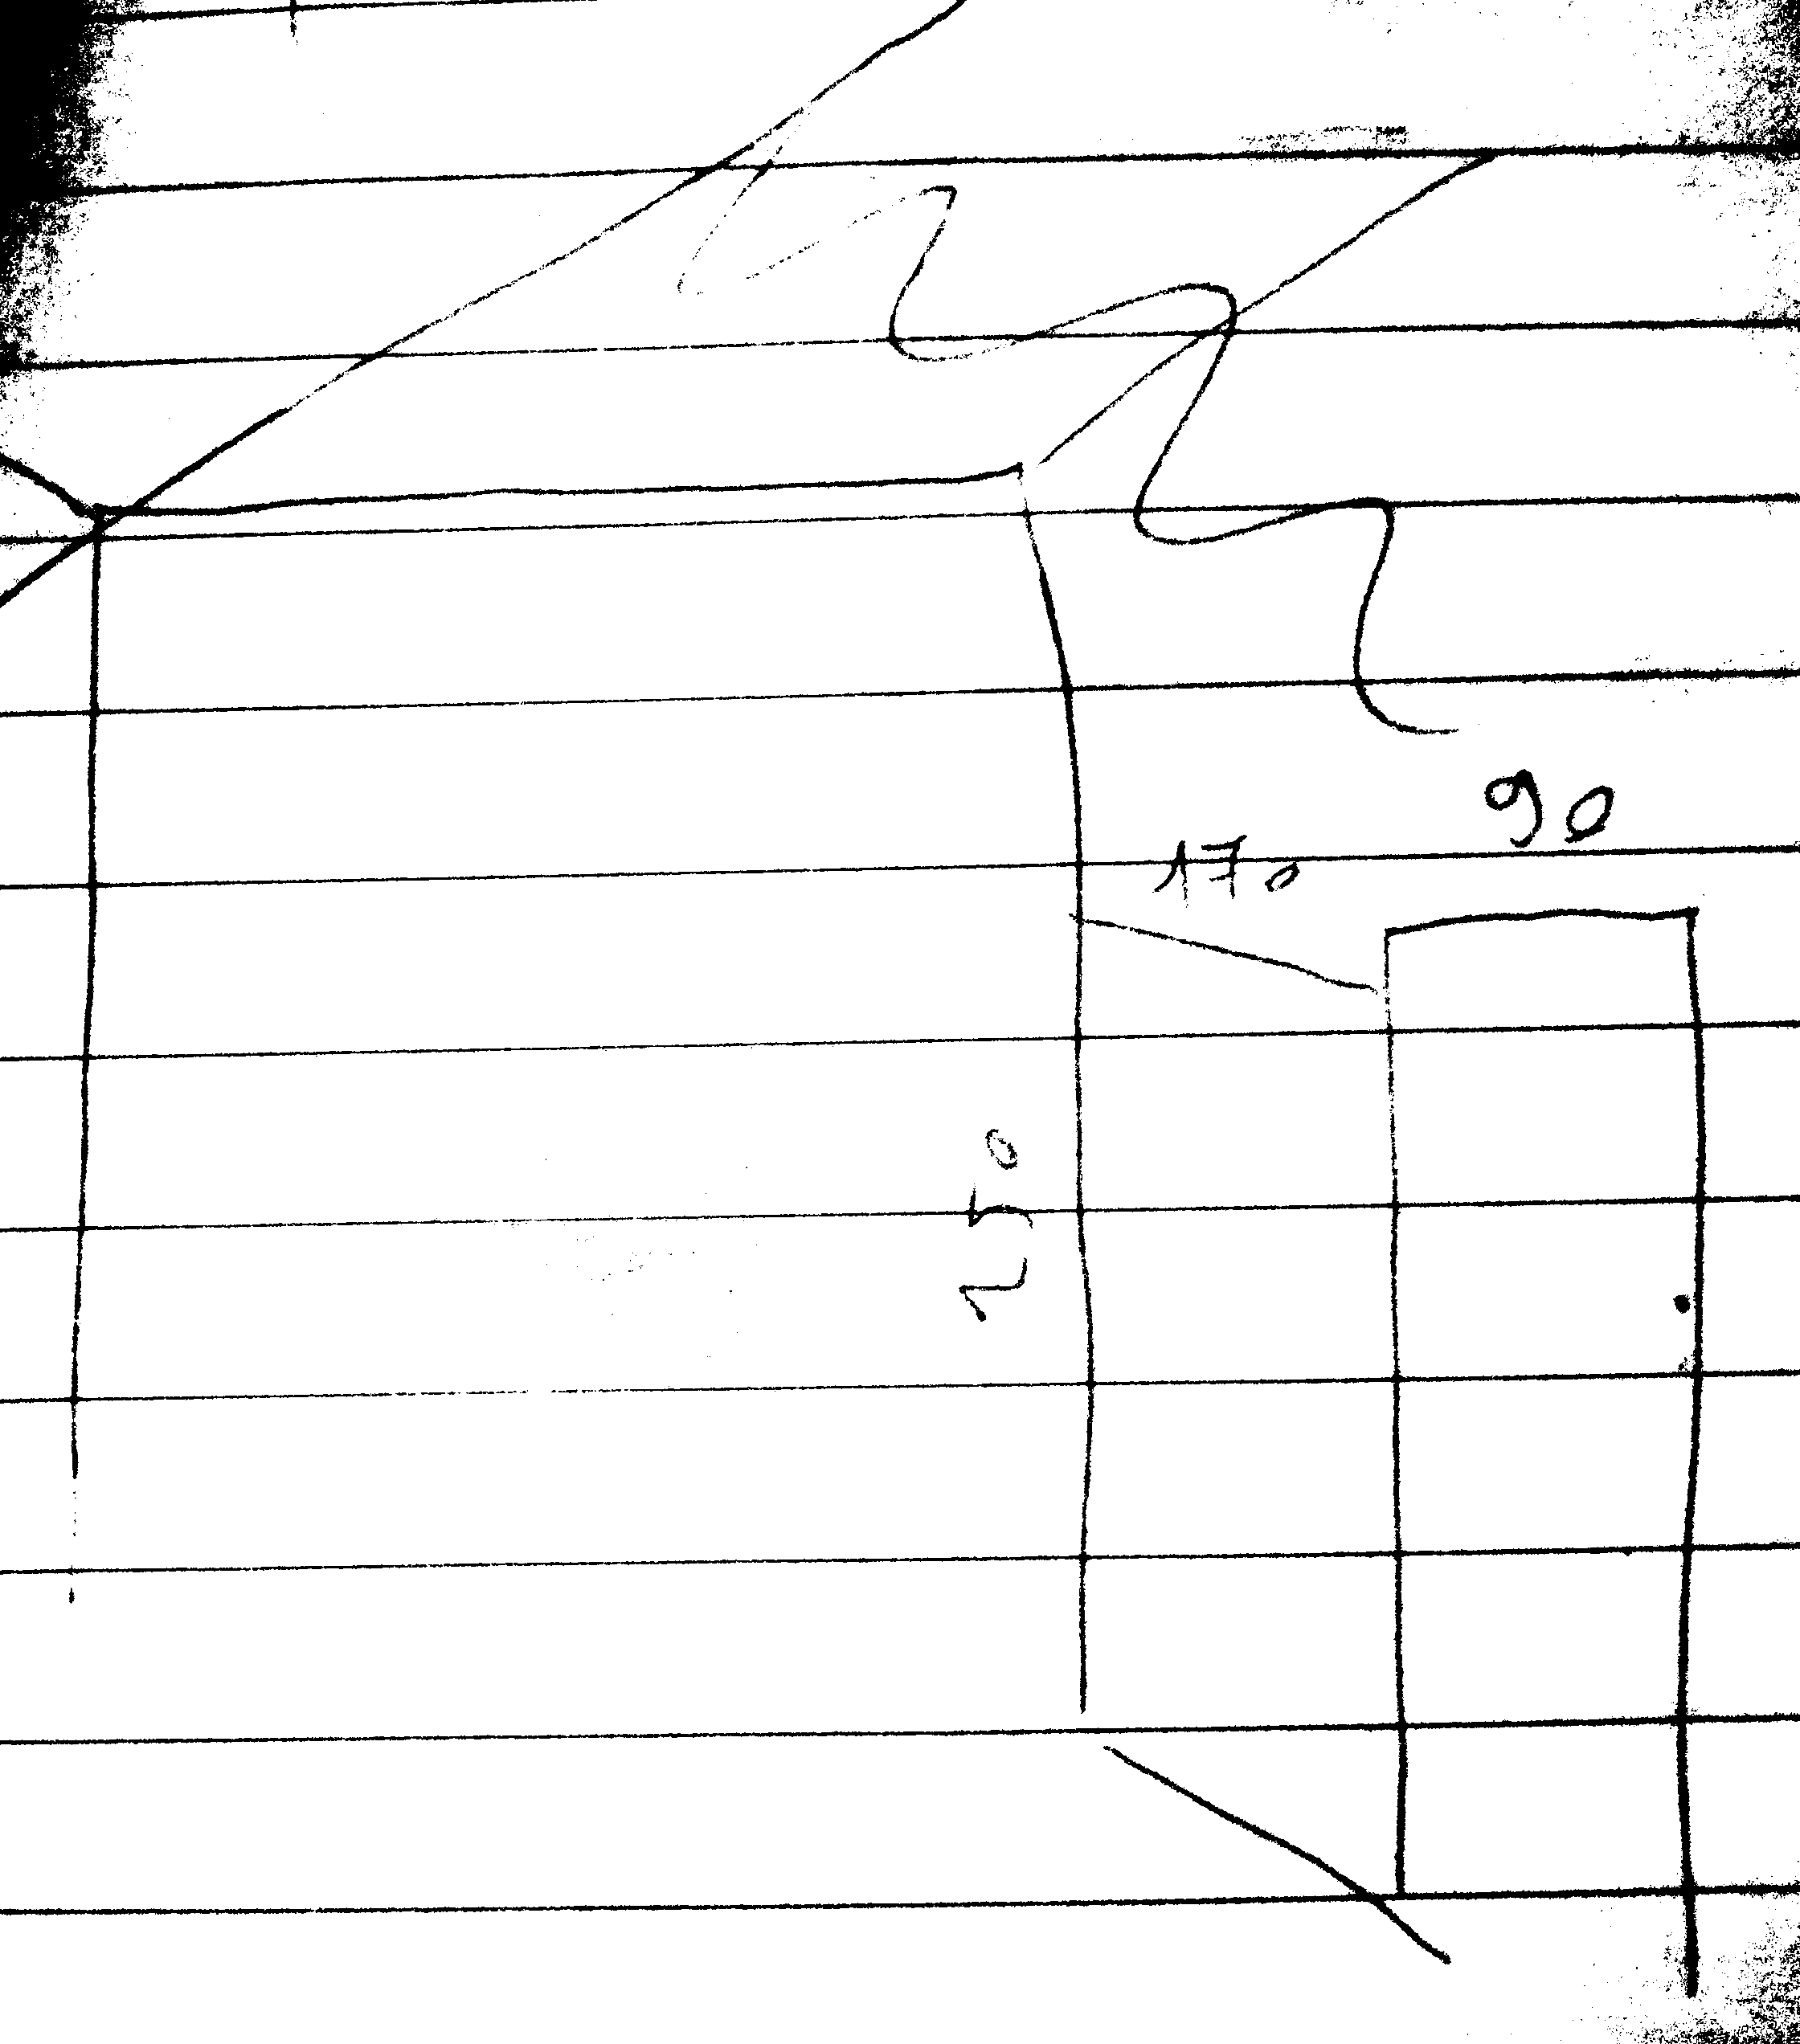 90
170
250